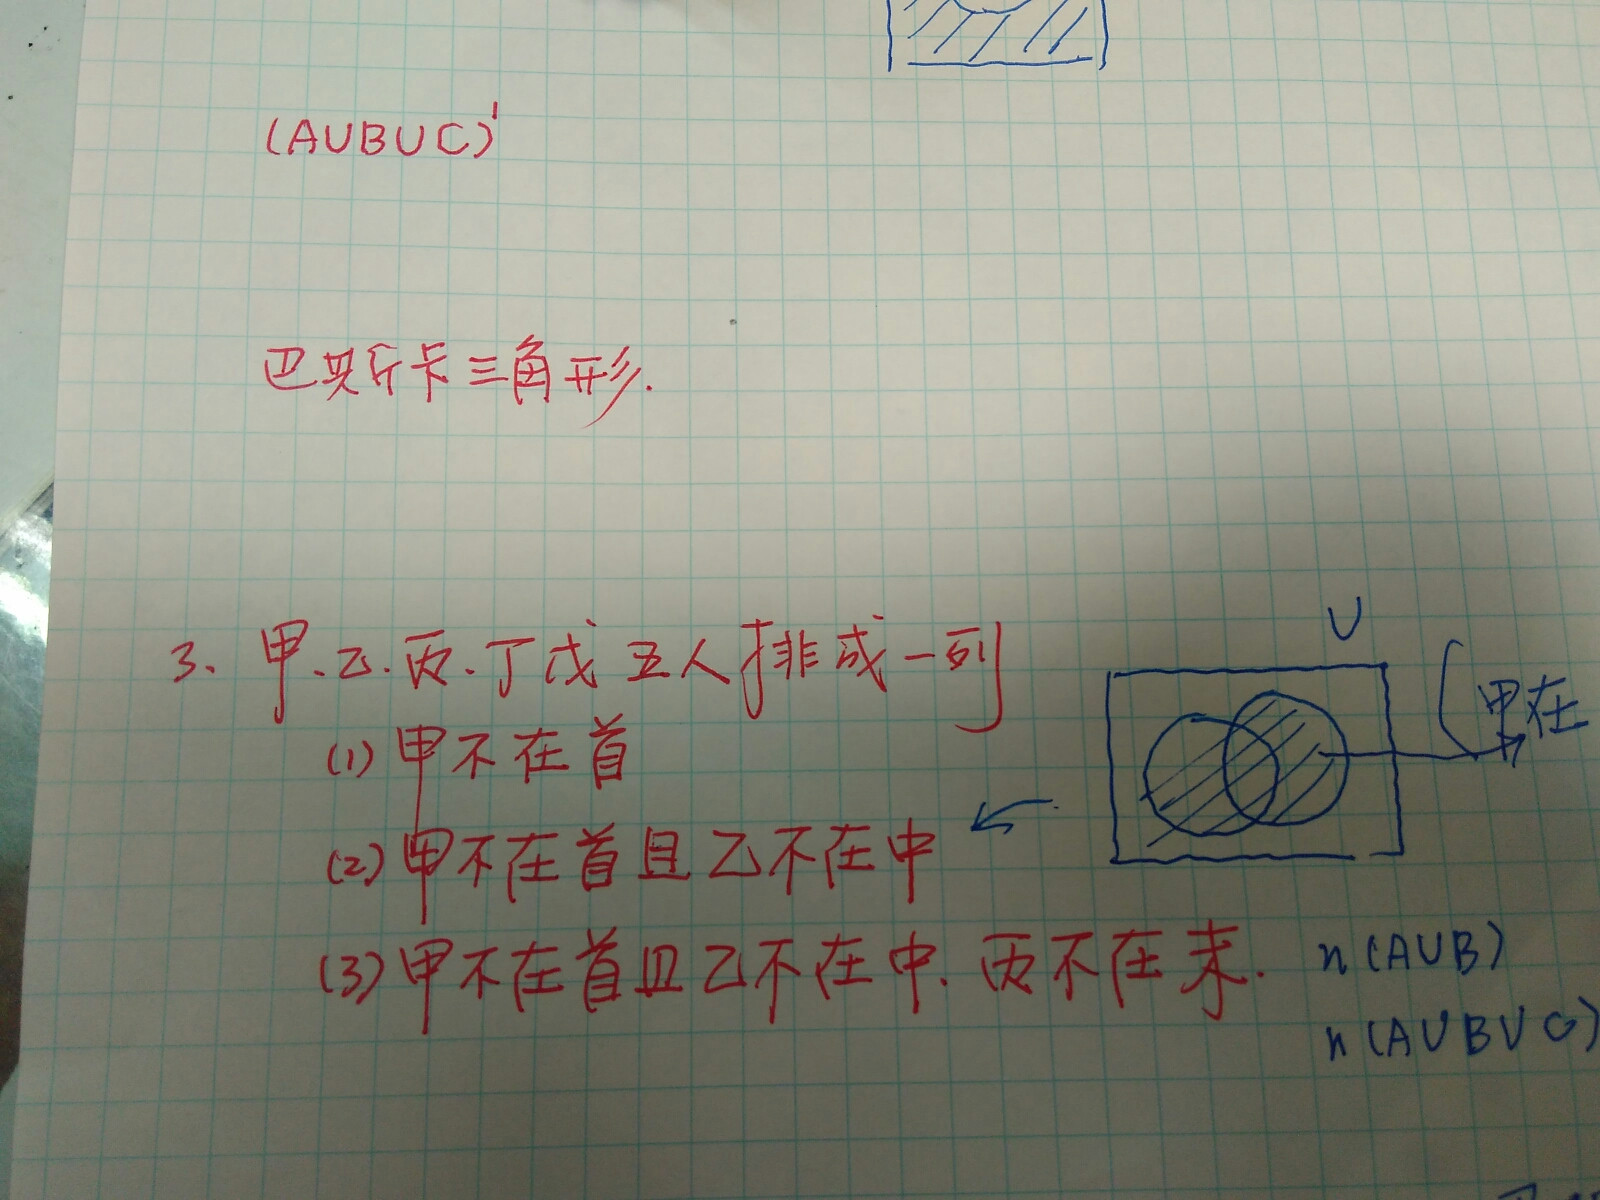 (AUBUC)'
巴斯卡三角形.
3、甲、乙、丙、丁戊五人排成一列
(1) 甲不在首
(2) 甲不在首且乙不在中
(3) 甲不在首且乙不在中.丙不在末.
U
甲在
n(AUB)
n(AUBUC)